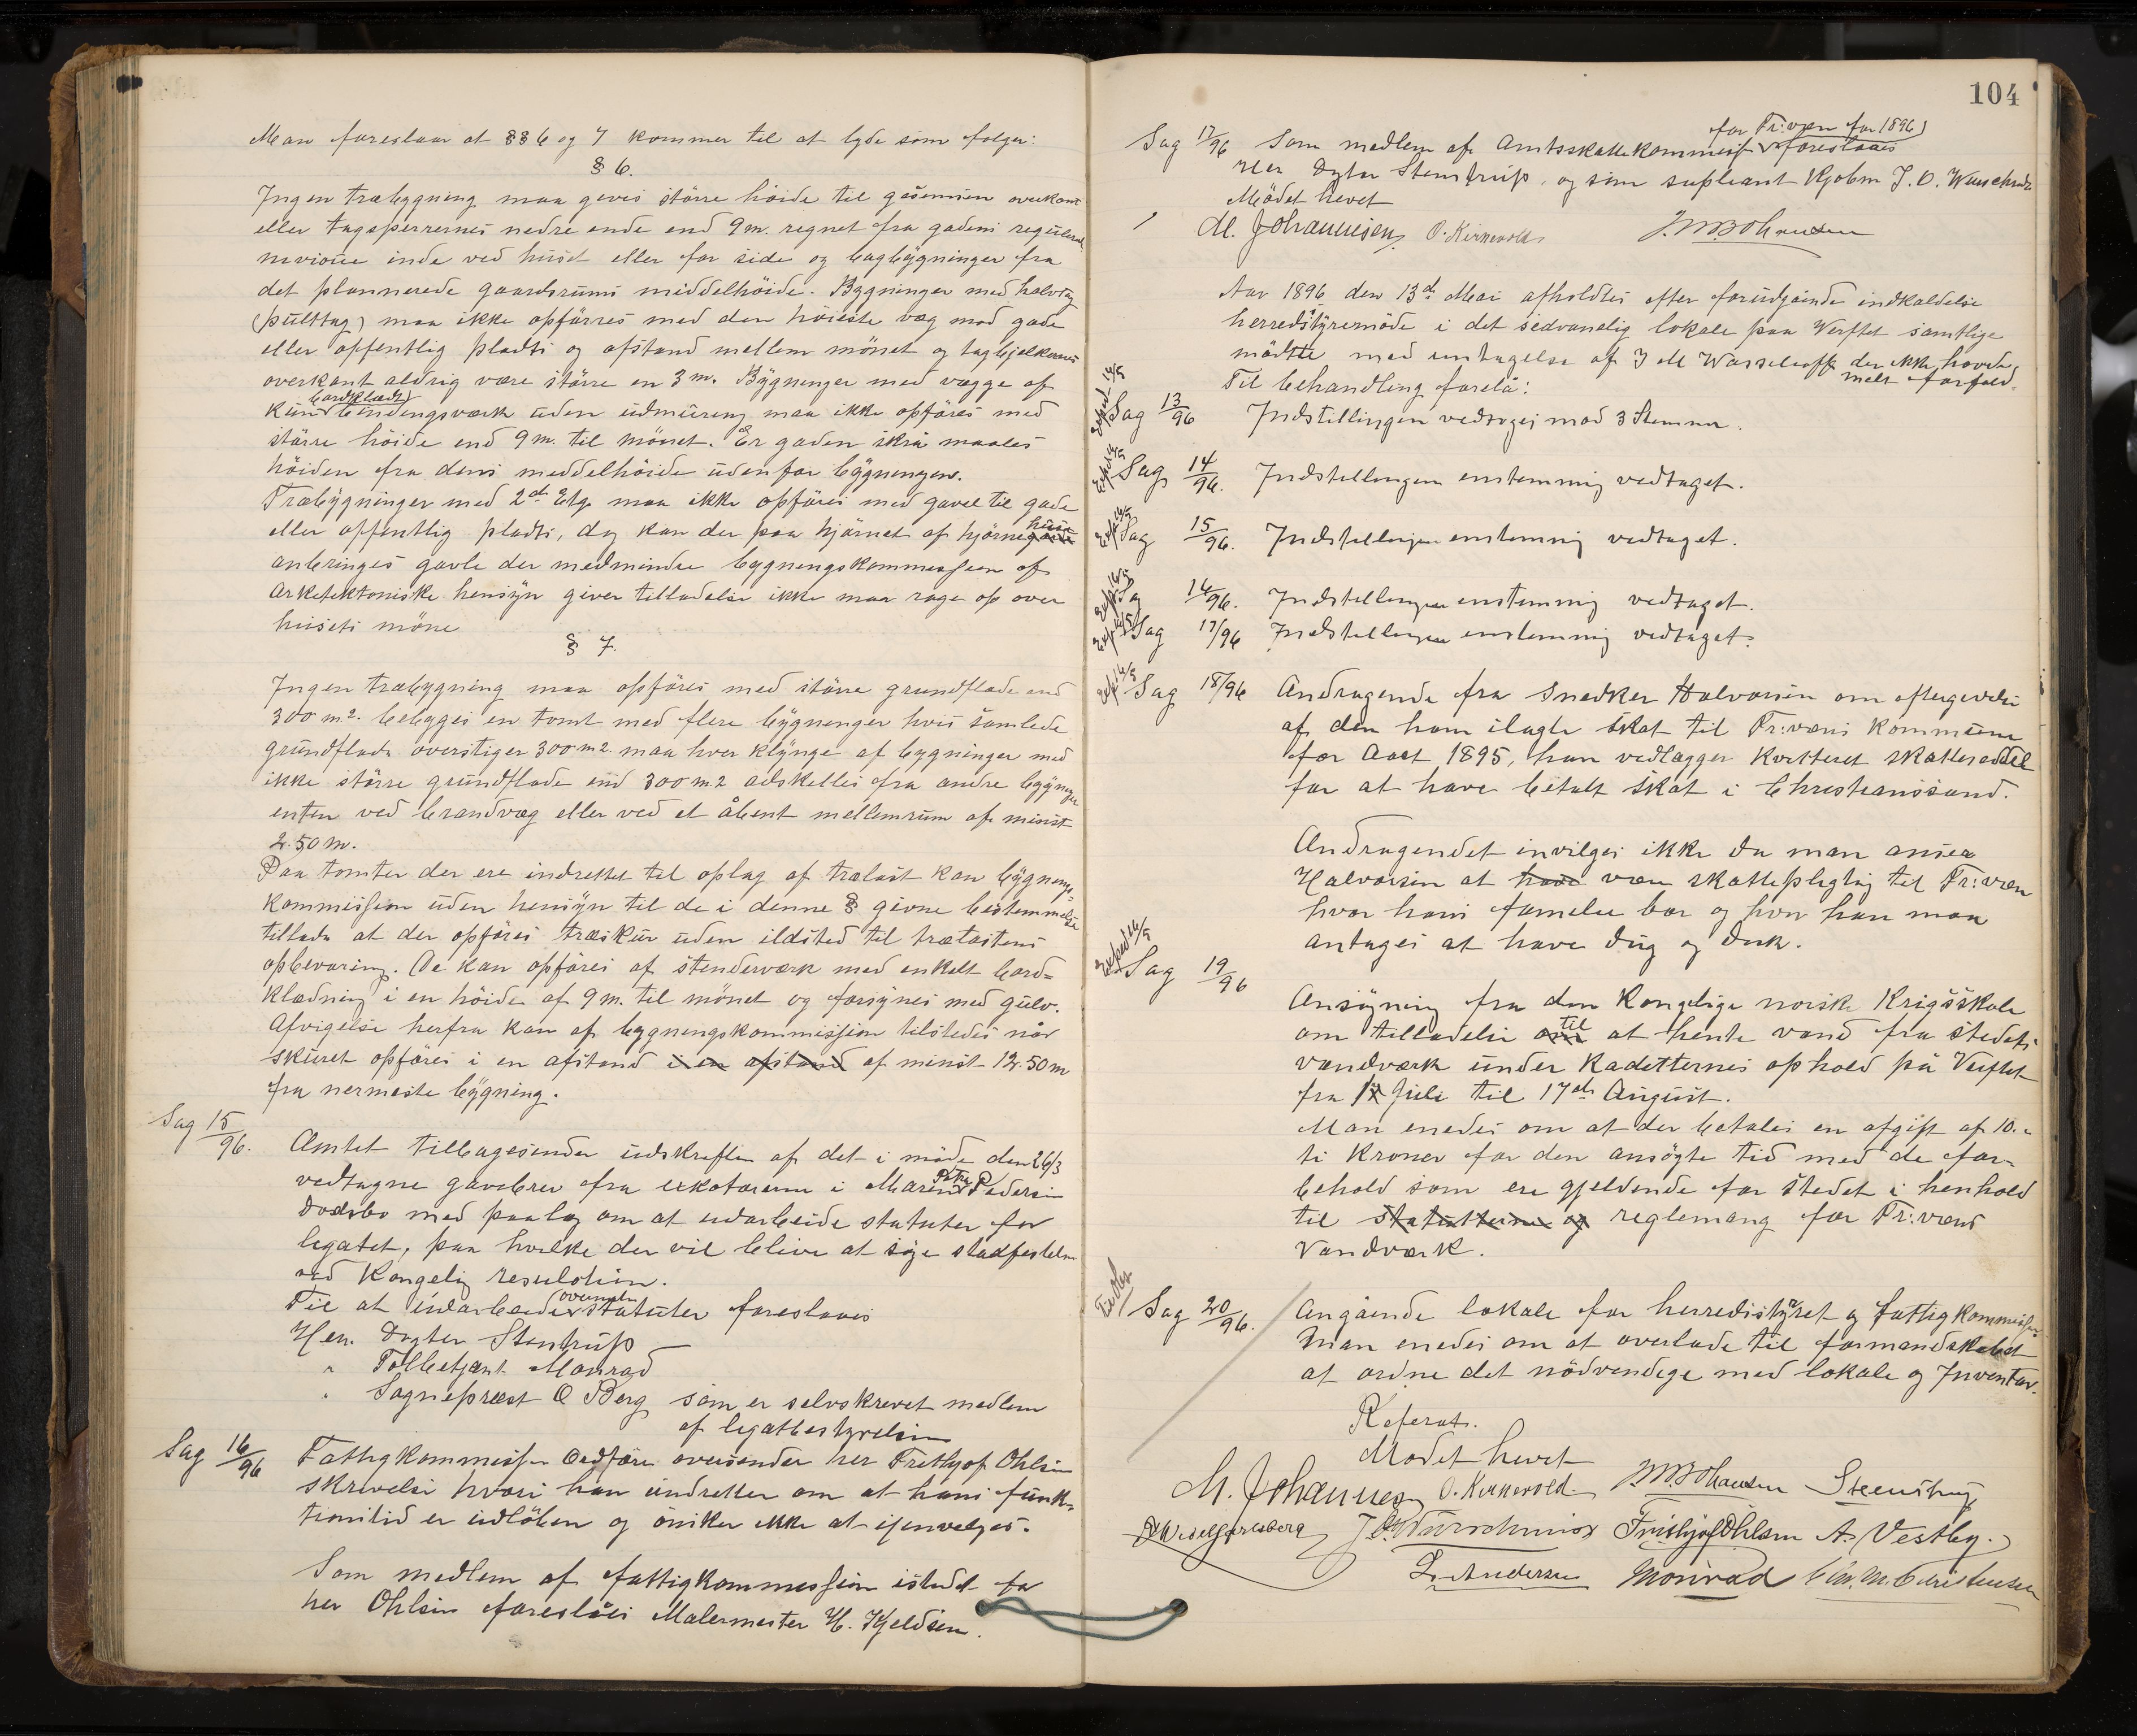 Man foreslaar at §§ 6 og 7 kommer til at lyde som følger:
§ 6.
Ingen træbygning maa gives större höide til gesemsen overkant
eller tagsperrernes nedre ende end 9 m. regnet fra gadens
inde ved huset eller for side og bagbygninger fra
det plannerede gaardsrums middelhöide. Bygninger med halvtag
(pulttag) maa ikke opförres med den höieste væg mod gade
eller offentlig plads og afstand mellem mönet og tagbjelkernes
overkant aldrig være större en 3 m. Bygninger med vægge af
kun bordklædt bindingsværk uden udmuring maa ikke opföres med
större höide end 9 m. til mönet. Er gaden skrå maales
höiden fra dens meddelhöide udenfor bygningen.
Træbygninger med 2den Etg maa ikke opföres med gavl til gade
eller offentlig plads, dog kan der paa hjörnet af hjörnegaarde huse
anbringes gavle der medmindre bygningskommessionen af
arketektoniske hensyn giver tilladelse ikke maa rage op over
husets möne
§ 7.
Ingen træbygning maa opföres med större grundflade end
300 m2. bebygges en tomt med flere bygninger hvis samlede
grundflade overstiger 300 m2. maa hver klynge af bygninger med
ikke större grundflade end 300 m2 adskelles fra andre bygninger
enten ved brandvæg eller ved et åbent mellemrum af minst
2.50 m.
Paa tomter der ere indrettet til oplag af trælast kan bygnings-
kommissionen uden hensyn til de i denne § givne bestemmelser
tillade at der opföres træskur uden ildsted til trælastens
opbevaring. De kan opföres af stenderværk med enkelt bord=
klædning i en höide af 9 m. til mönet og forsynes med gulv.
Afvigelse herfra kan af bygningskommissionen tilstedes når
skuret opföres i en afstand i en afstand af minst 12.50 m
fra nermeste bygning.
Sag 15/96. Amtet tilbagesender udskriften af det i möde den 26/3
vedtagne gavebrev fra exkotorerne i Maren Petr. Pedersen
Dødsbo med paalæg om at udarbeide statuter for
legatet, paa hvilke der vil blive at söge stadfestelse
ved Kongelig resulotion.
Til at udarbeide ovennevnte statuter foreslaaes
Hen. Dogter Stenstrup
" Tolbetjent Monrad
" Sogneprest O Berg som er selvskrevet medlem
af legatbestyrelsen
Sag 16/96 Fattigkommissionens Ordförer oversender her Frethjof Ohlsen
skrivelse hvori han undretter om at hans funk-
tionstid er udlöben og önsker ikke at gjenvelges.
Som medlem af fattigkommissionen istedet for
her Ohlsen foreslåes Malermester H. Kjeldsen.
104
Sag 17/96 Som medlem af Amtsskattekommissionen for Fr:værn for 1896 foreslaaes
Her Dogter Stenstrup, og som supleant Kjøbm J. O. Wunschmidt
Mödet hevet
M. Johannesen O. Kirkevold J. M. B. Johansen
Aar 1896 den 13de Mai afholdtes efter forudgående indkaldelse
herredstyremöde i det sedvanelig lokale paa Verftet samtlige
mödtte med untagelse af J M Wasselhoff der ikke havde
melt forfald.
Til behandling forelå:
Exped 16/5 Sag 13/96 Indstillingen vedtoges mod 3 Stemmer.
Exped 16/5 Sag 14/96. Indstellingen enstemmig vedtaget.
Exp 16/5 Sag 15/96. Indstellingen enstemmig vedtaget.
Exp 16/5 Sag 16/96. Indstellingen enstemmig vedtaget.
Exp 16/5 Sag 17/96 Indstellingen enstemmig vedtaget.
Exp 16/5 Sag 18/96 Andragende fra Snedker Halvorsen om eftergivelse
af den ham ilagte skat til Fr:værns kommune
for Aaet 1895, han vedlægger kvitteret skatteseddel
for at have betalt skat i Christianssand.
Andragendet invilges ikke da man anser
Halvorsen at have være skattepligtig til Fr:værn
hvor hans famelie bor og hvor han maa
antages at have dug og disk.
Exped 16/5 Sag 19/96 Ansögning fra den Kongelige norske Krigsskole
om tilladelse om til at hente vand fra stedets
vandværk under Kadetternes ophold på Verftet
fra 1 Juli til 17de August.
Man enedes om at der betales en afgift af 10.-
ti Kroner for den ansögte tid med de for-
behold som ere gjeldende for stedet i henhold
til statutterne og reglemang for Fr:værns
Vandværk.
Sag 20/96. Angående lokale for herredsstyret og fattigkommissionen
Man enedes om at overlade til formandskabet
at ordne det nödvendige med lokale og Inventar.
Referat.
Mødet hevet
M. Johannesen O. Kirkevold. J. M. B. Johansen Steenstrup
Wedel Jarlsberg J. O. Wunschmidt Frithjof Ohlsen A. Vestby.
L. Andersen Monrad Chr. M. Christensen